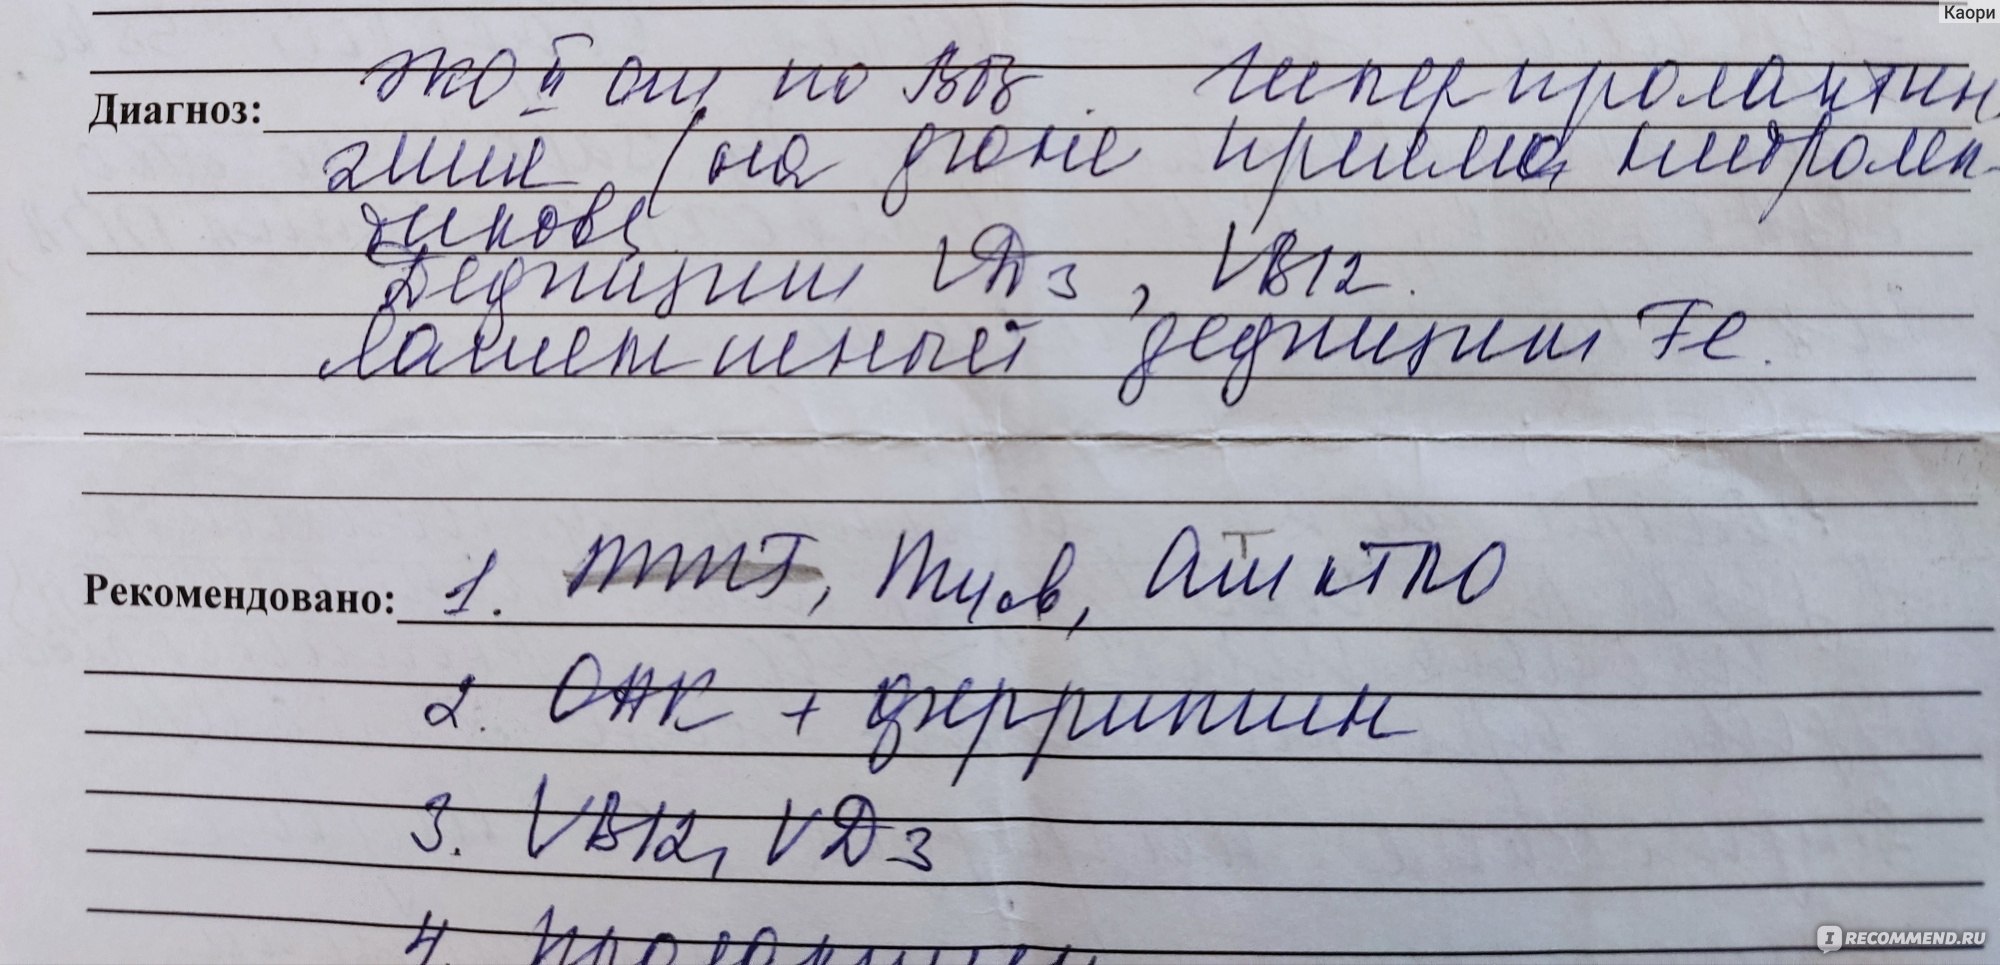 Каори
Диагноз: ЖО II ст по ВОЗ. Гиперпролактин
емия (на фоне приема нейролеп-
тиков)
Дефицит VD3, VB12.
Латентный дефицит Fe.
Рекомендовано: 1. ТТГ, Т4св, Ат к ТПО
2. ОАК + ферритин
3. VB12, VD3
4. Пролактин
IRECOMMEND.RU